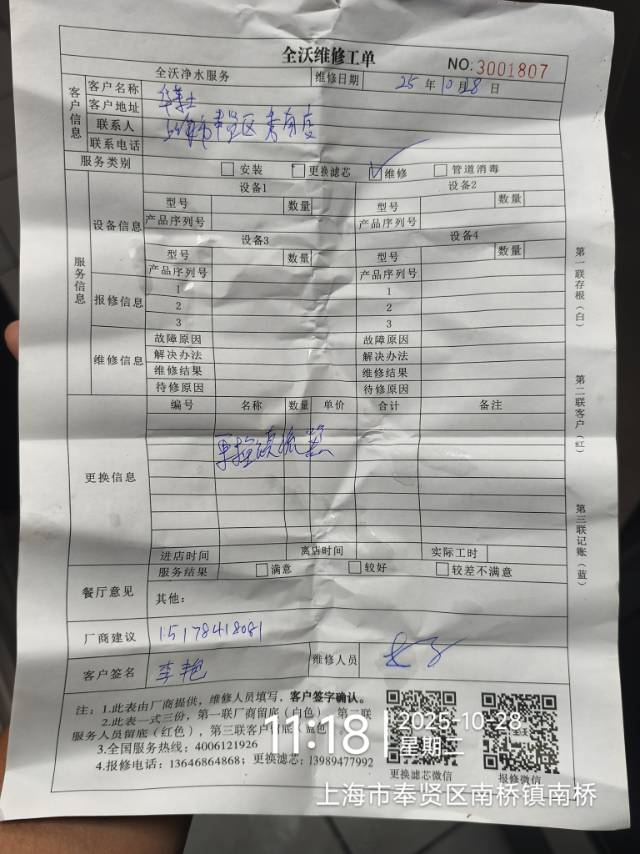 全沃维修工单
NO:3001807
全沃净水服务 维修日期 25 年 10 月 28 日
客户信息
客户名称 华莱士
客户地址 上海市奉贤区
联系人
联系电话
服务类别 安装 更换滤芯 维修 管道消毒
服务信息
设备信息
设备1 设备2
型号 数量 型号 数量
产品序列号 产品序列号
设备3 设备4
型号 数量 型号 数量
产品序列号 产品序列号
报修信息
1 1
2 2
3 3
维修信息
故障原因 故障原因
解决办法 解决办法
维修结果 维修结果
待修原因 待修原因
更换信息
编号 名称 数量 单价 合计 备注
进店时间 离店时间 实际工时
餐厅意见
服务结果 满意 较好 较差不满意
其他:
厂商建议 15178418081
客户签名 李艳 维修人员
注:1.此表由厂商提供,维修人员填写,客户签字确认。
2.此表一式三份,第一联厂商留底(白色),第二联
服务人员留底(红色),第三联客户留底(蓝色)
3.全国服务热线:4006121926
4.报修电话:13646864868;更换滤芯:13989477992
更换滤芯微信 报修微信
第一联存根(白)
第二联客户(红)
第三联记账(蓝)
11:18
2025-10-28
星期二
上海市奉贤区南桥镇南桥